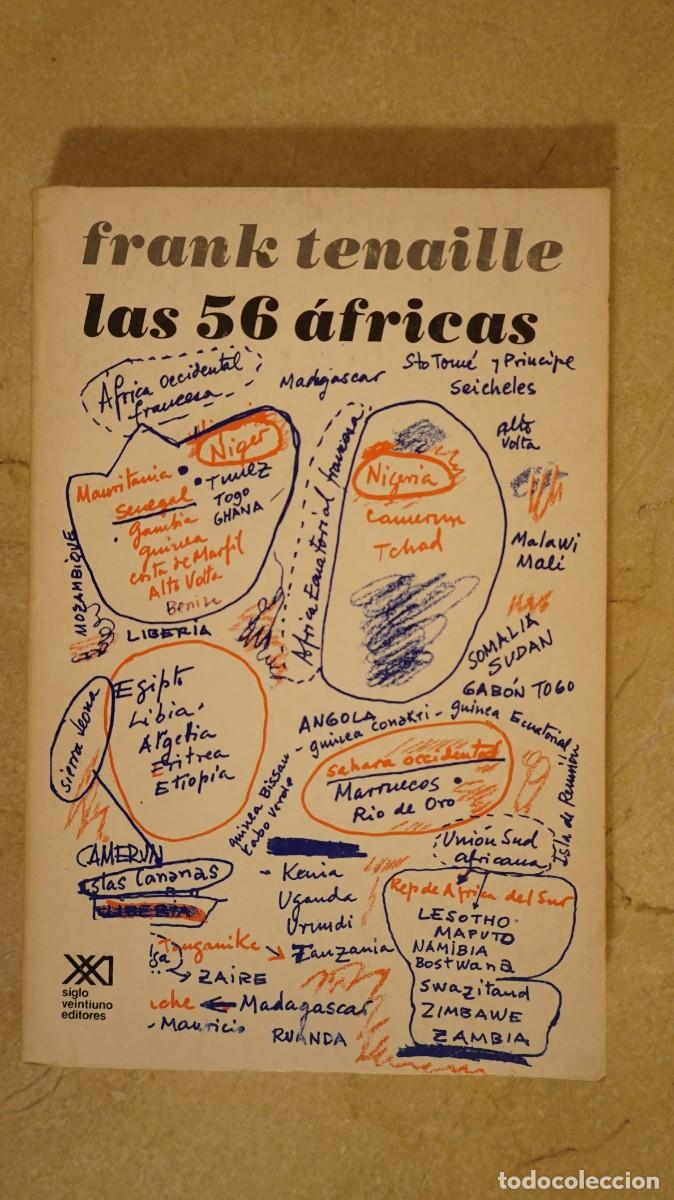 frank tenaille
las 56 áfricas
Africa occidental
francesa
Madagascar
Sto Tomé y Principe
Seicheles
Niger
Mauritania
Senegal
Gambia
guinea
costa de Marfil
Alto Volta
Benin
Tunez
Togo
GHANA
MOZAMBIQUE
LIBERIA
Africa Ecuatorial francesa
Nigeria
Camerun
Tchad
Alto
Volta
Malawi
Mali
SOMALIA
SUDAN
GABÓN TOGO
sierra leona
Egipto
Libia
Argelia
Eritrea
Etiopia
ANGOLA
- guinea conakri - guinea Ecuatorial
guinea Bissau
Cabo verde
sahara occidental
Marruecos
Rio de Oro
Isla de Reunión
Unión Sud
africana
CAMERUN
Islas Cananas
LIBERIA
- Kenia
Uganda
Urundi
Tanzania
Tanganike
ZAIRE
Madagascar
- Mauricio
RUANDA
Rep de Africa del Sur
LESOTHO
MAPUTO
NAMIBIA
Bostwana
Swazitand
ZIMBAWE
ZAMBIA
siglo
veintiuno
editores
todocoleccion